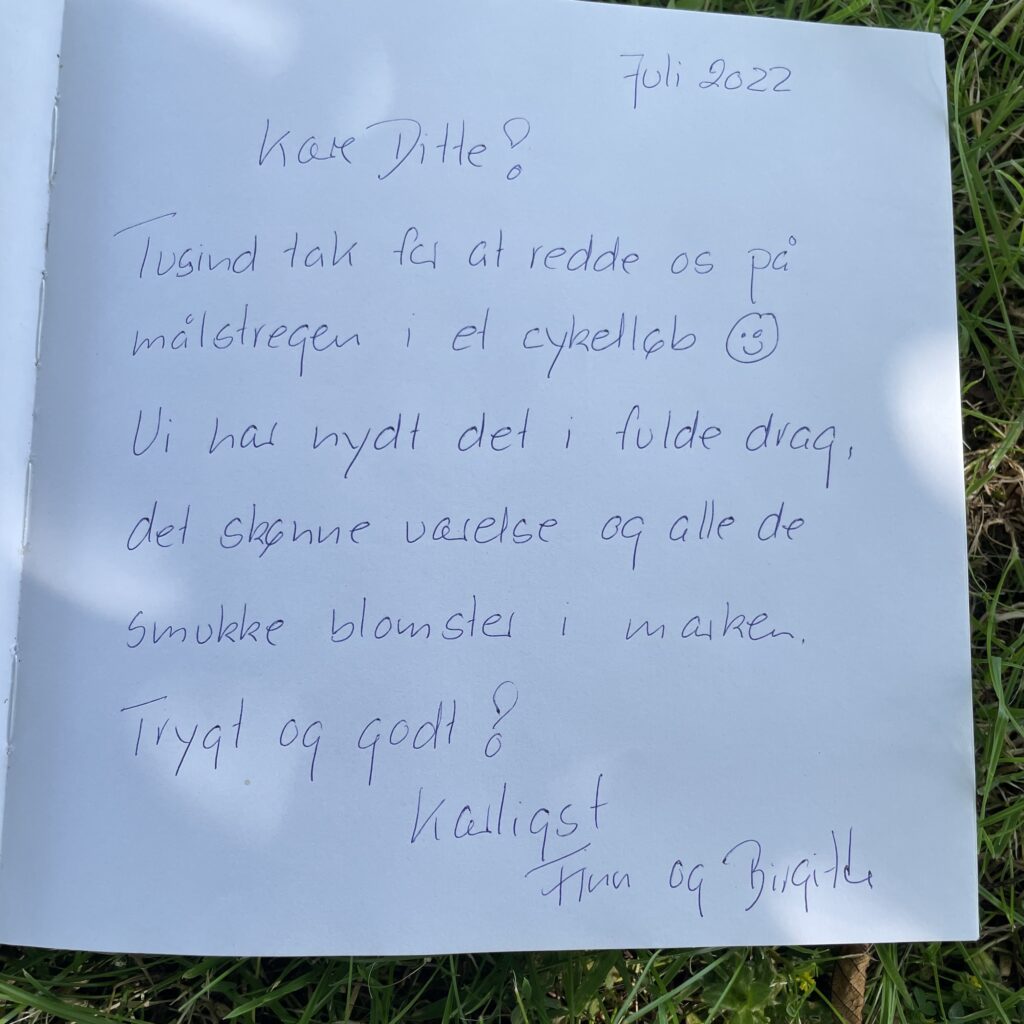 Juli 2022
Kære Ditte!
Tusind tak for at redde os på
målstregen i et cykelløb ☺
Vi har nydt det i fulde drag,
det skønne værelse og alle de
smukke blomster i marken.
Trygt og godt!
Kærligst
Finn og Birgitte